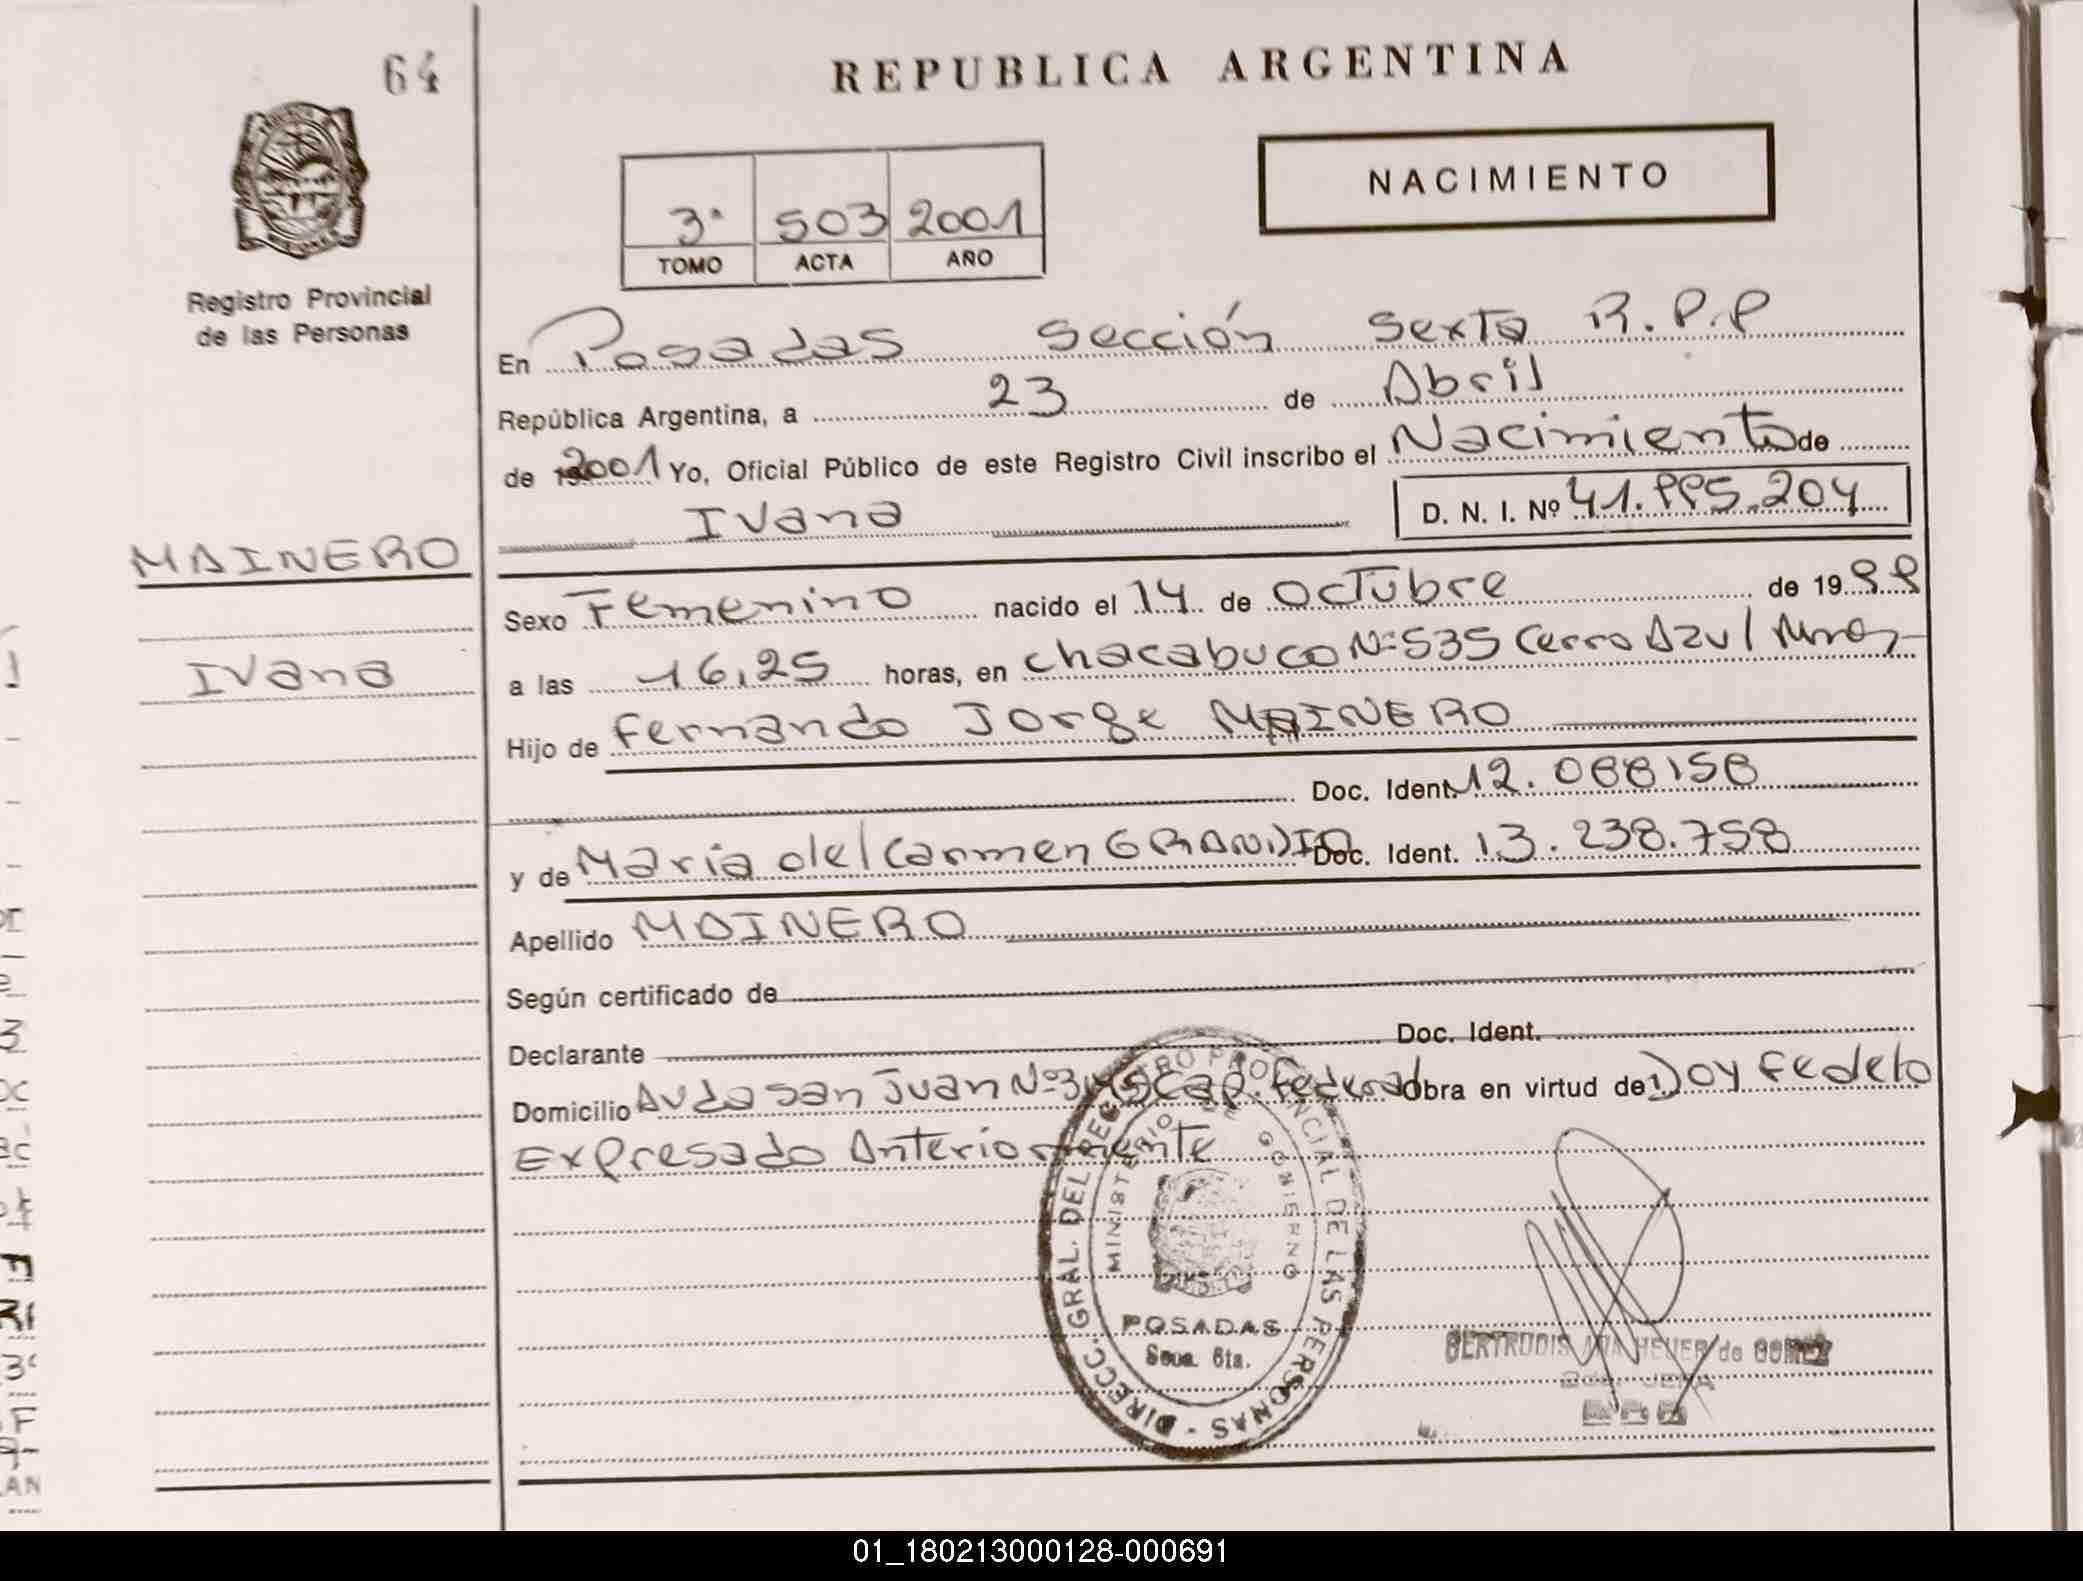 64
REPUBLICA ARGENTINA
NACIMIENTO
3ª 503 2001
TOMO ACTA AÑO
Registro Provincial
de las Personas
En Posadas Sección Sexta R.P.P
República Argentina, a 23 de Abril
de 2001 Yo, Oficial Público de este Registro Civil inscribo el Nacimiento de
Ivana D. N. I. Nº 41.995.204
MAINERO
Ivana
Sexo Femenino nacido el 14 de Octubre de 1999
a las 16,25 horas, en Chacabuco Nº 535 Cerro Azul
Hijo de Fernando Jorge MAINERO
Doc. Ident. 12.088158
y de Maria del Carmen GRANDIO Doc. Ident. 13.238.758
Apellido MAINERO
Según certificado de
Declarante Doc. Ident.
Domicilio Avda San Juan Nº Cap. Federal Obra en virtud de Doy Fe de lo
Expresado Anteriormente
DIRECC. GRAL. DEL REGISTRO PROVINCIAL DE LAS PERSONAS
MINISTERIO DE GOBIERNO
POSADAS
Secc. 6ta.
GERTRUDIS ANA HEUER de GOMEZ
01_180213000128-000691